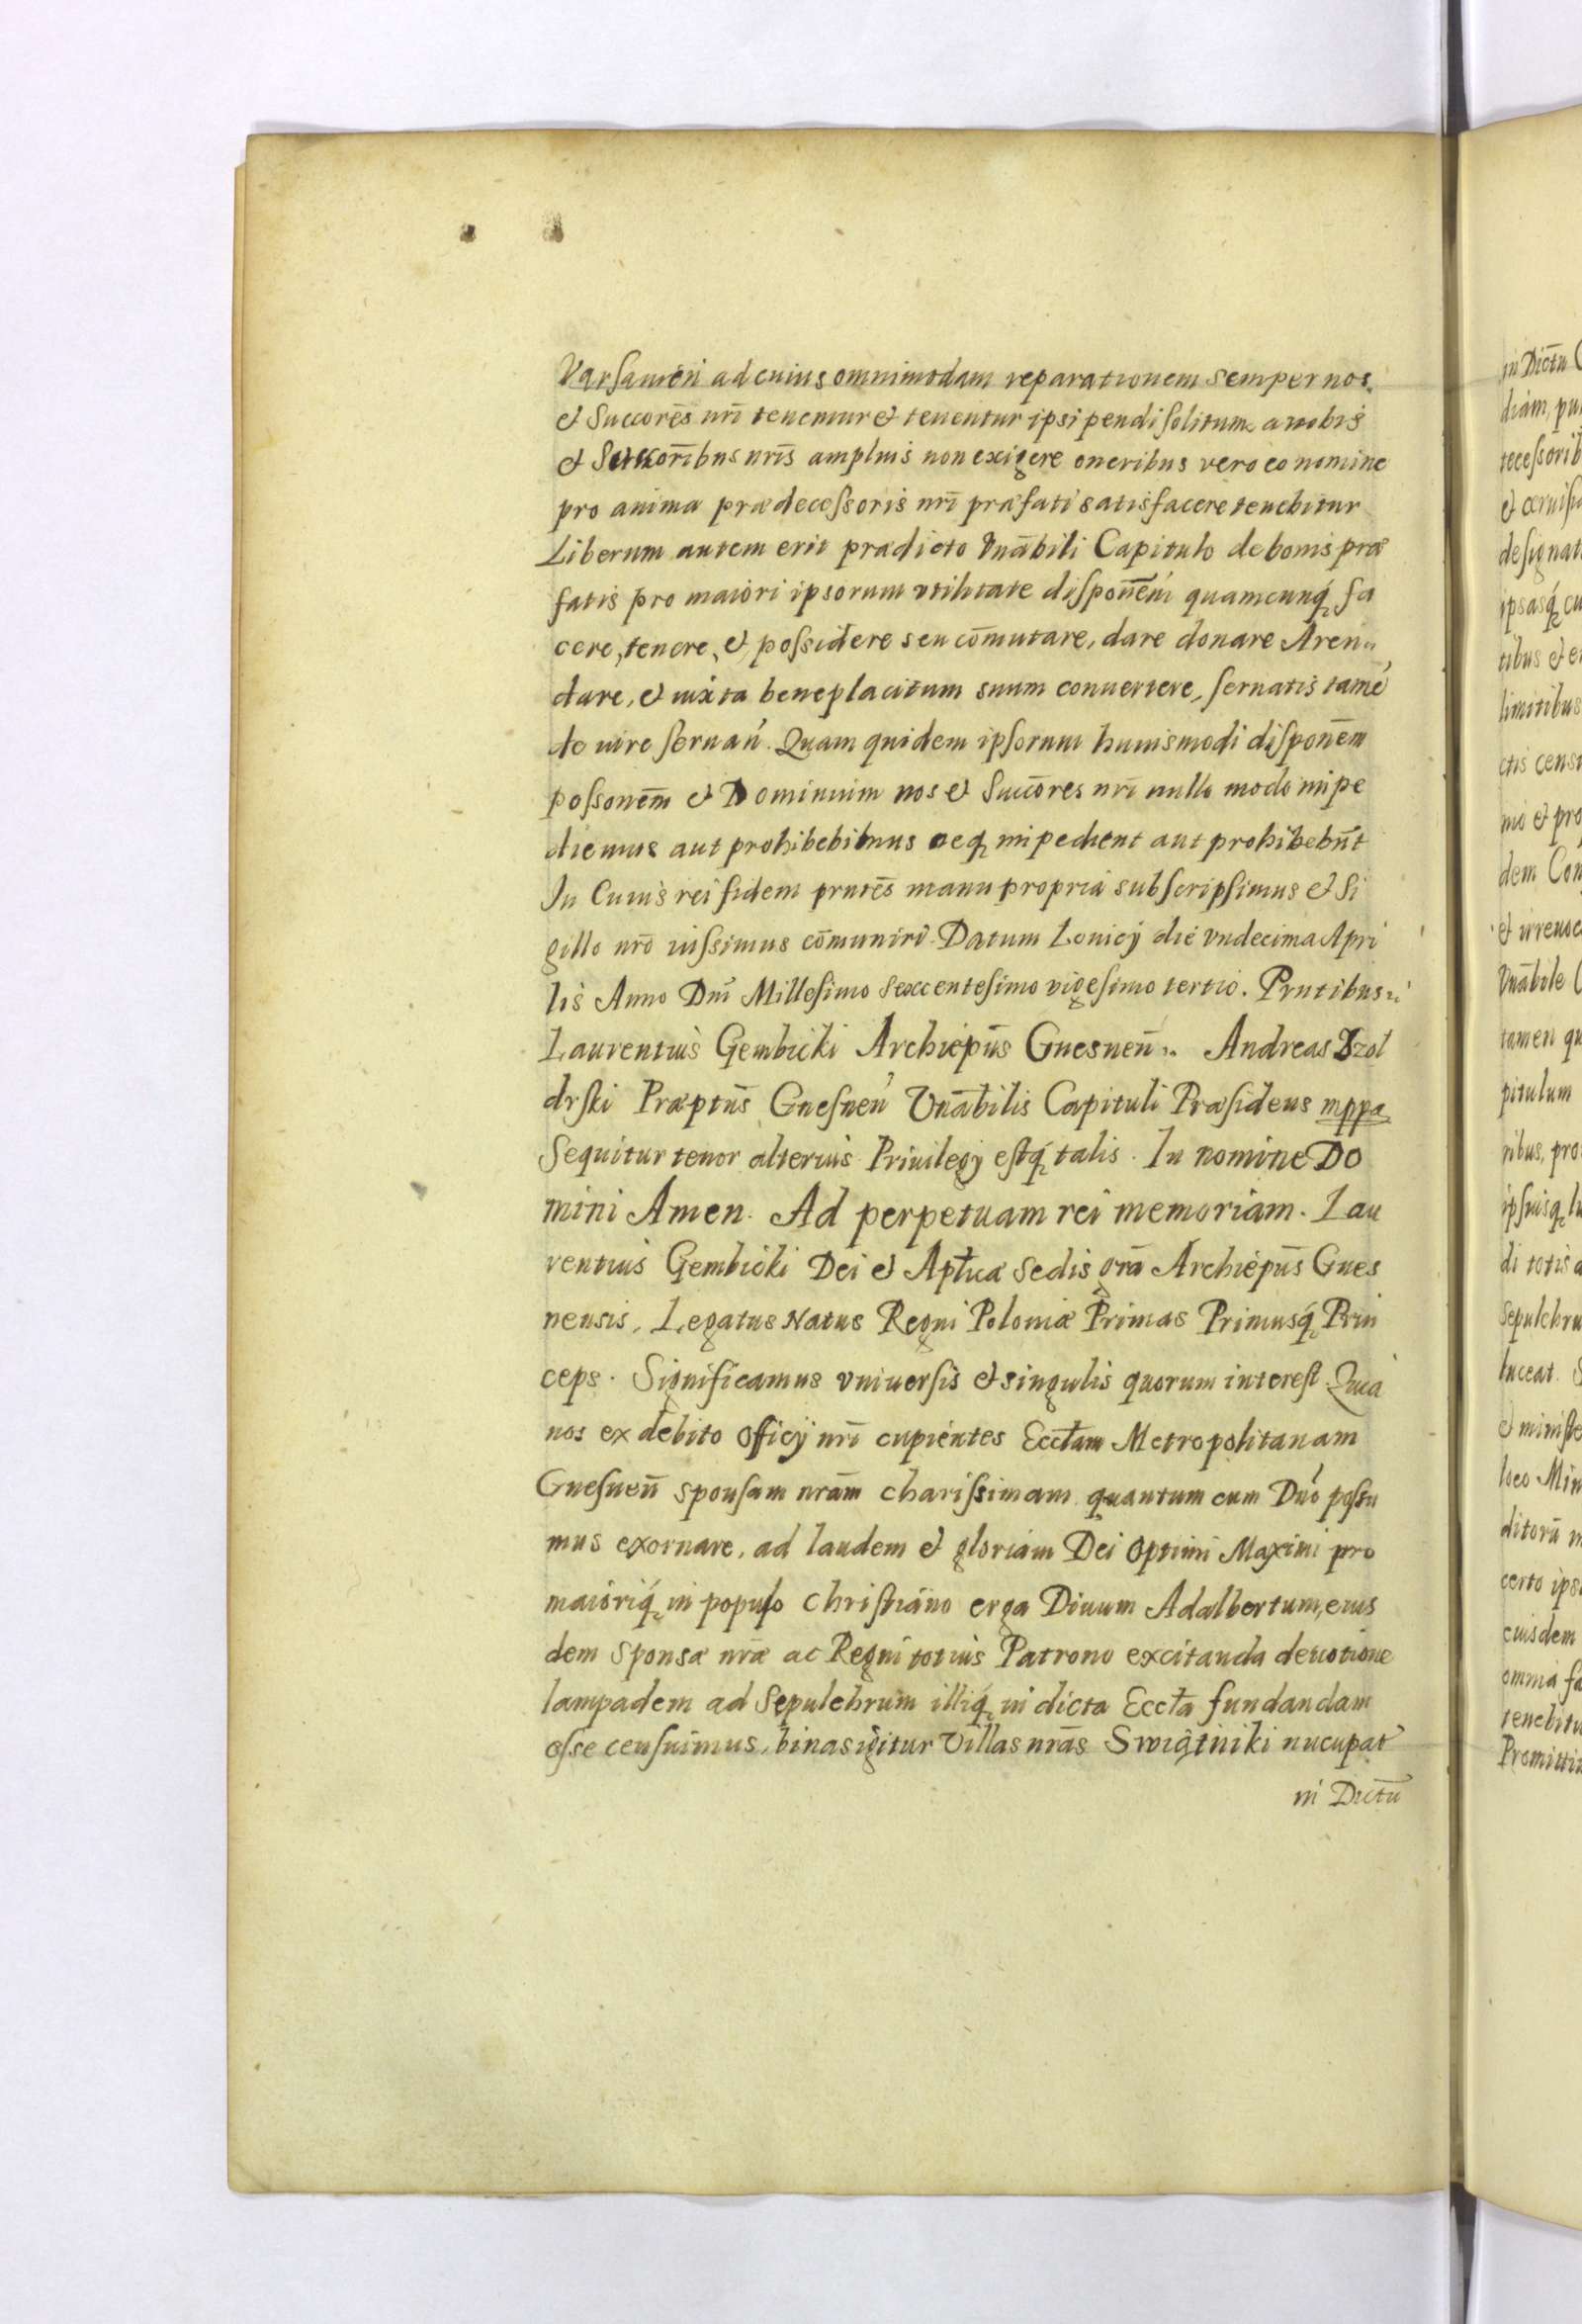 Varsauień ad cuius omnimodam reparationem semper nos
et Succorēs nrī tenemur et tenentur ipsi pendi solitum a nobis
et Succorībus nrīs amplius non exigere oneribus vero eo nomine
pro anima prædecessoris nrī præfati satisfacere tenebitur
Liberum autem erit prædicto Vnābili Capitulo de bonis præ
fatis pro maiori ipsorum vtilitate disponēm quamcunq́ fa
cere, tenere, et possidere seu cōmutare, dare donare Aren
dare, et iuxta beneplacitum suum conuertere, seruatis tamē
de iure seruań. Quam quidem ipsorum huiusmodi disponēm
possonēm et Dominium nos et Succōres nrī nullo modo impe
diemus aut prohibebimus neq impedient aut prohibebūt
In Cuius rei fidem prntēs manu propria subscripsimus et Si
gillo nrō iussimus cōmuniri. Datum Louicÿ die vndecima Apri
lis Anno Dnī Millesimo sexcentesimo vigesimo tertio. Prntibus
Laurentius Gembicki Archiepūs Gnesnen̄. Andreas Szol
drski Præptūs Gnesneń Vnābilis Capituli Præsidens mppa
Sequitur tenor alterius Priuilegÿ estq́ talis. In nomine Do
mini Amen. Ad perpetuam rei memoriam. Lau
rentius Gembicki Dei et Aptlicæ Sedis grā Archiepūs Gnes
nensis, Legatus Natus Regni Poloniæ Primas Primusq́ Prin
ceps. Significamus vniuersis et singulis quorum interest. Quia
nos ex debito Officÿ nrī cupientes Ecctam Metropolitanam
Gnesnen̄ sponsam nrām charissimam quantum cum Dnó possu
mus exornare, ad laudem et gloriam Dei Optimi Maximi pro
maioriq́ in populo christiano erga Diuum Adalbertum, eius
dem sponsæ nrǣ ac Regni totius Patrono excitanda deuotione
lampadem ad Sepulchrum illiq́ in dicta Eccta fundandam
esse censuimus, binas igitur Villas nrās Swigtniki nucupat
in Dictū